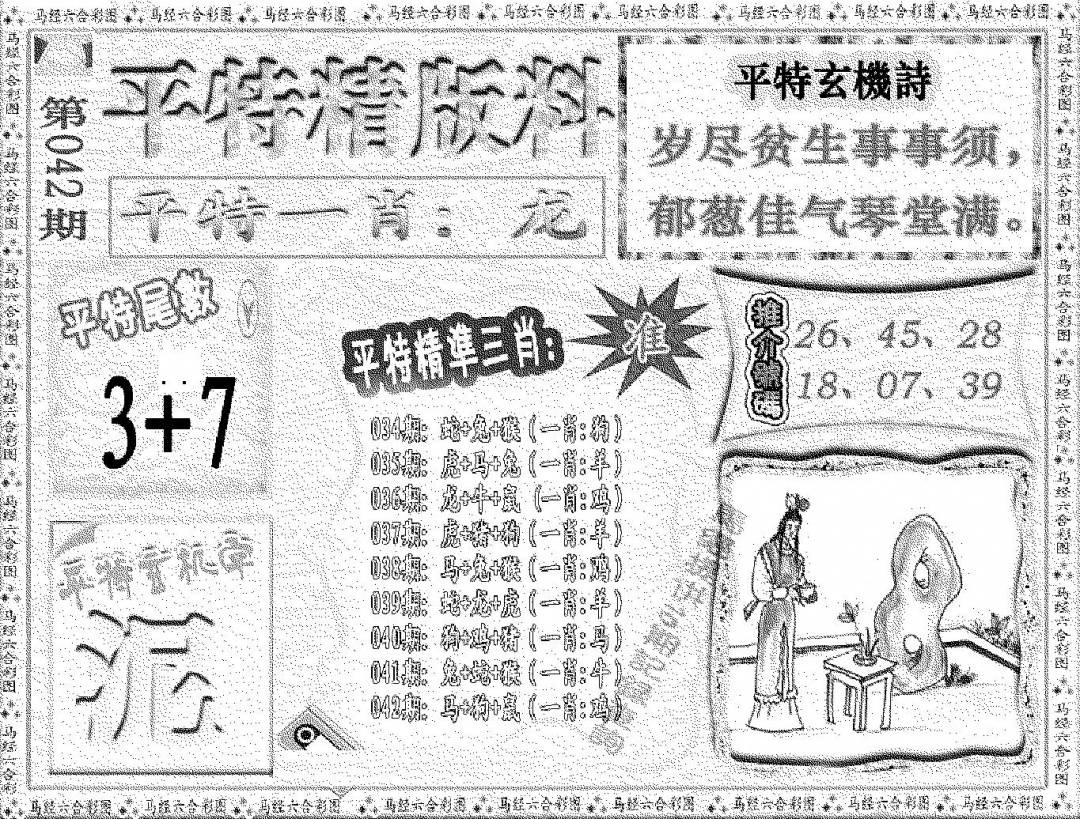 马经六合彩图 马经六合彩图 马经六合彩图 马经六合彩图 马经六合彩图 马经六合彩图 马经六合彩图 马经六合彩图 马经六合彩图
第042期
平特精版料
平特一肖：龙
平特玄機詩
岁尽贫生事事须，
郁葱佳气琴堂满。
平特尾数
3+7
平特精準三肖:
准
034期: 蛇+兔+猴(一肖:狗)
035期: 虎+马+兔(一肖:羊)
036期: 龙+牛+鼠(一肖:鸡)
037期: 虎+猪+狗(一肖:羊)
038期: 马+兔+猴(一肖:鸡)
039期: 蛇+龙+虎(一肖:羊)
040期: 狗+鸡+猪(一肖:马)
041期: 兔+蛇+猴(一肖:牛)
042期: 马+狗+鼠(一肖:鸡)
推介號碼
26、45、28
18、07、39
平特玄机字
马经六合彩图 马经六合彩图 马经六合彩图 马经六合彩图 马经六合彩图 马经六合彩图 马经六合彩图 马经六合彩图 马经六合彩图